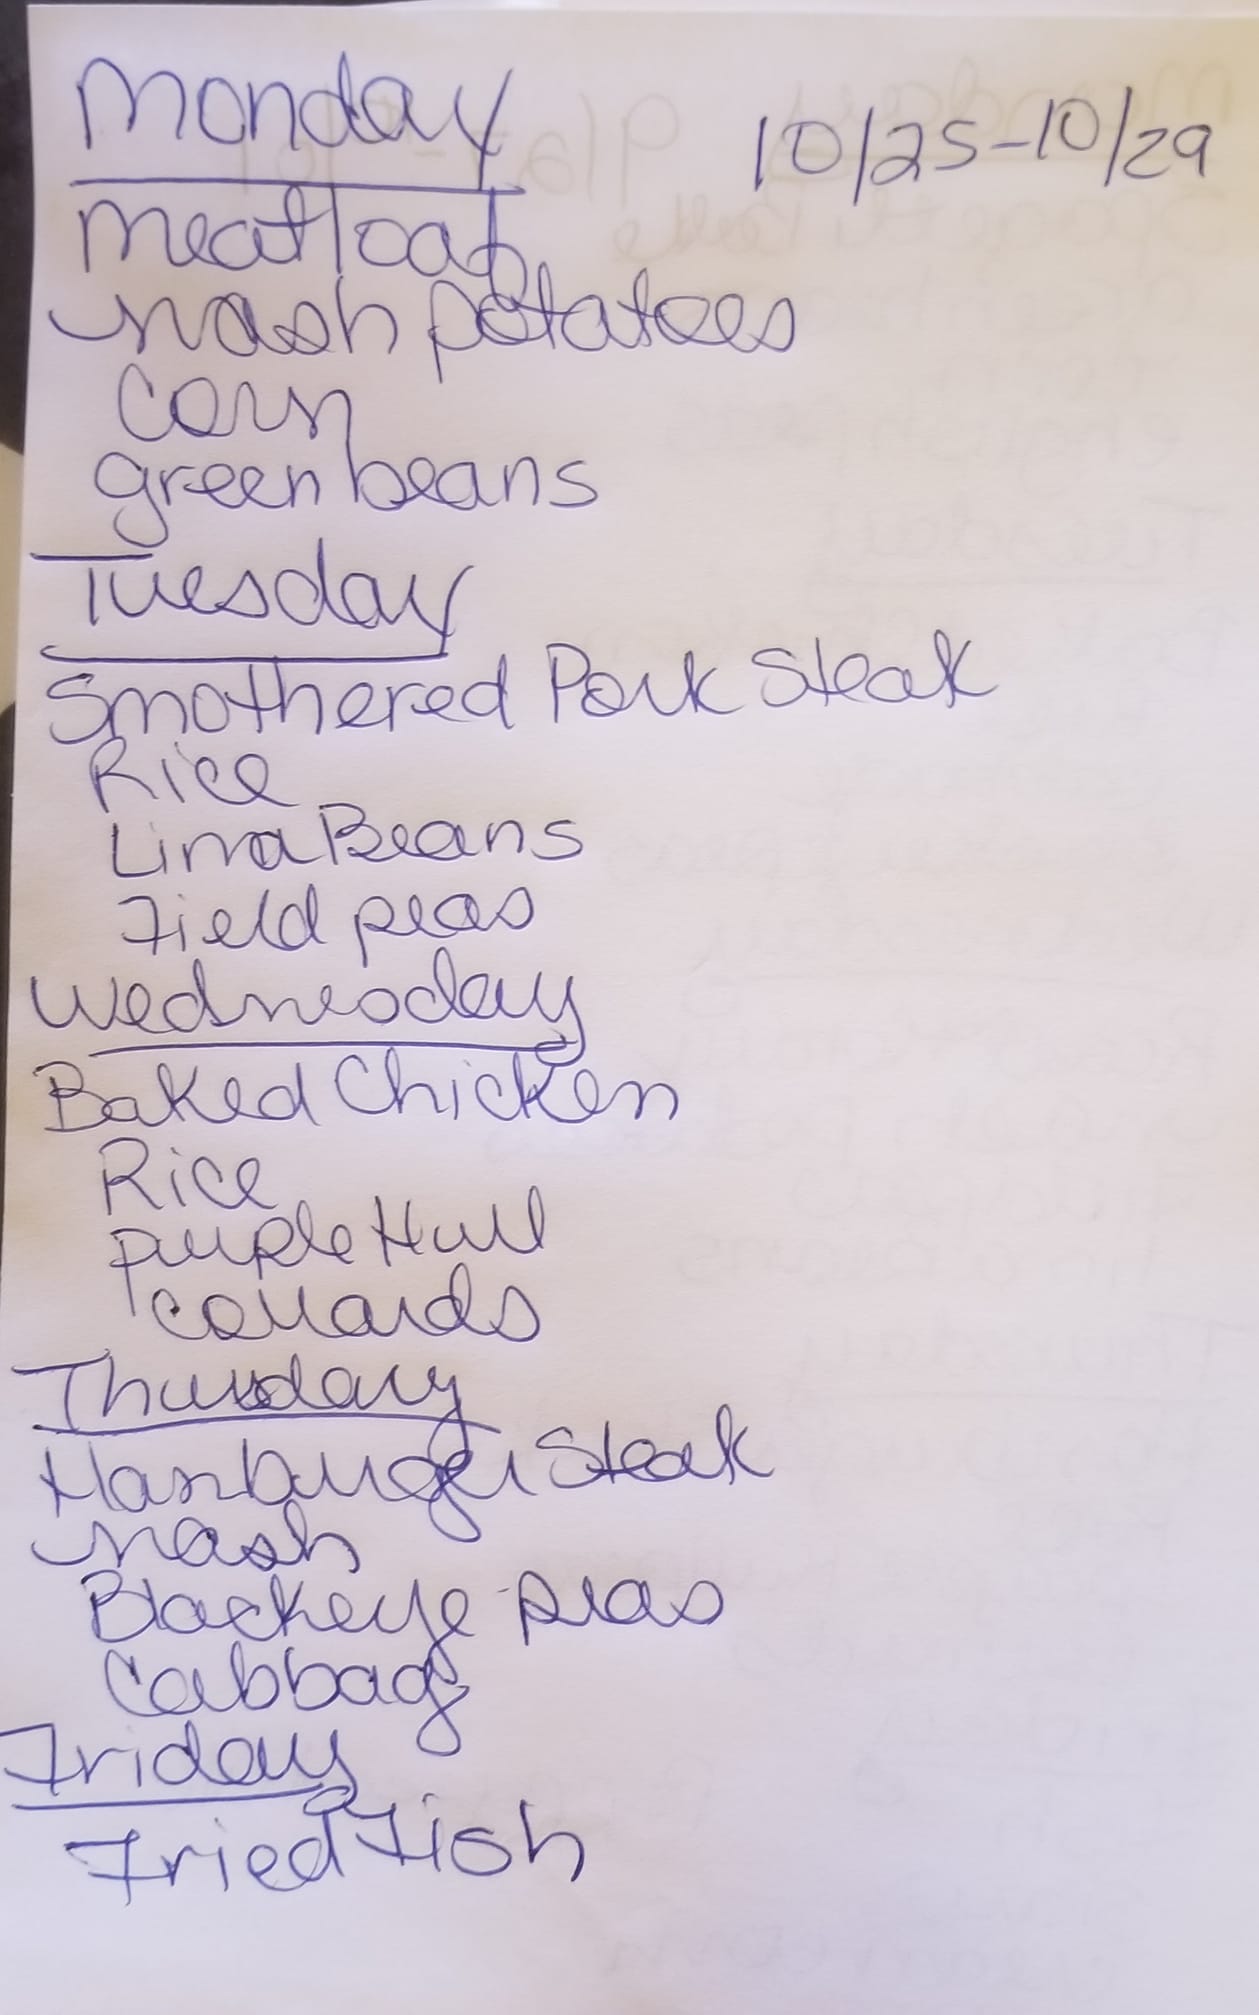 Monday
10/25-10/29
meatloaf
mash potatoes
Corn
green beans
Tuesday
Smothered Pork Steak
Rice
Lima Beans
Field peas
Wednesday
Baked Chicken
Rice
purple Hull
collards
Thursday
Hamburger Steak
mash
Blackeye peas
Cabbage
Friday
Fried Fish